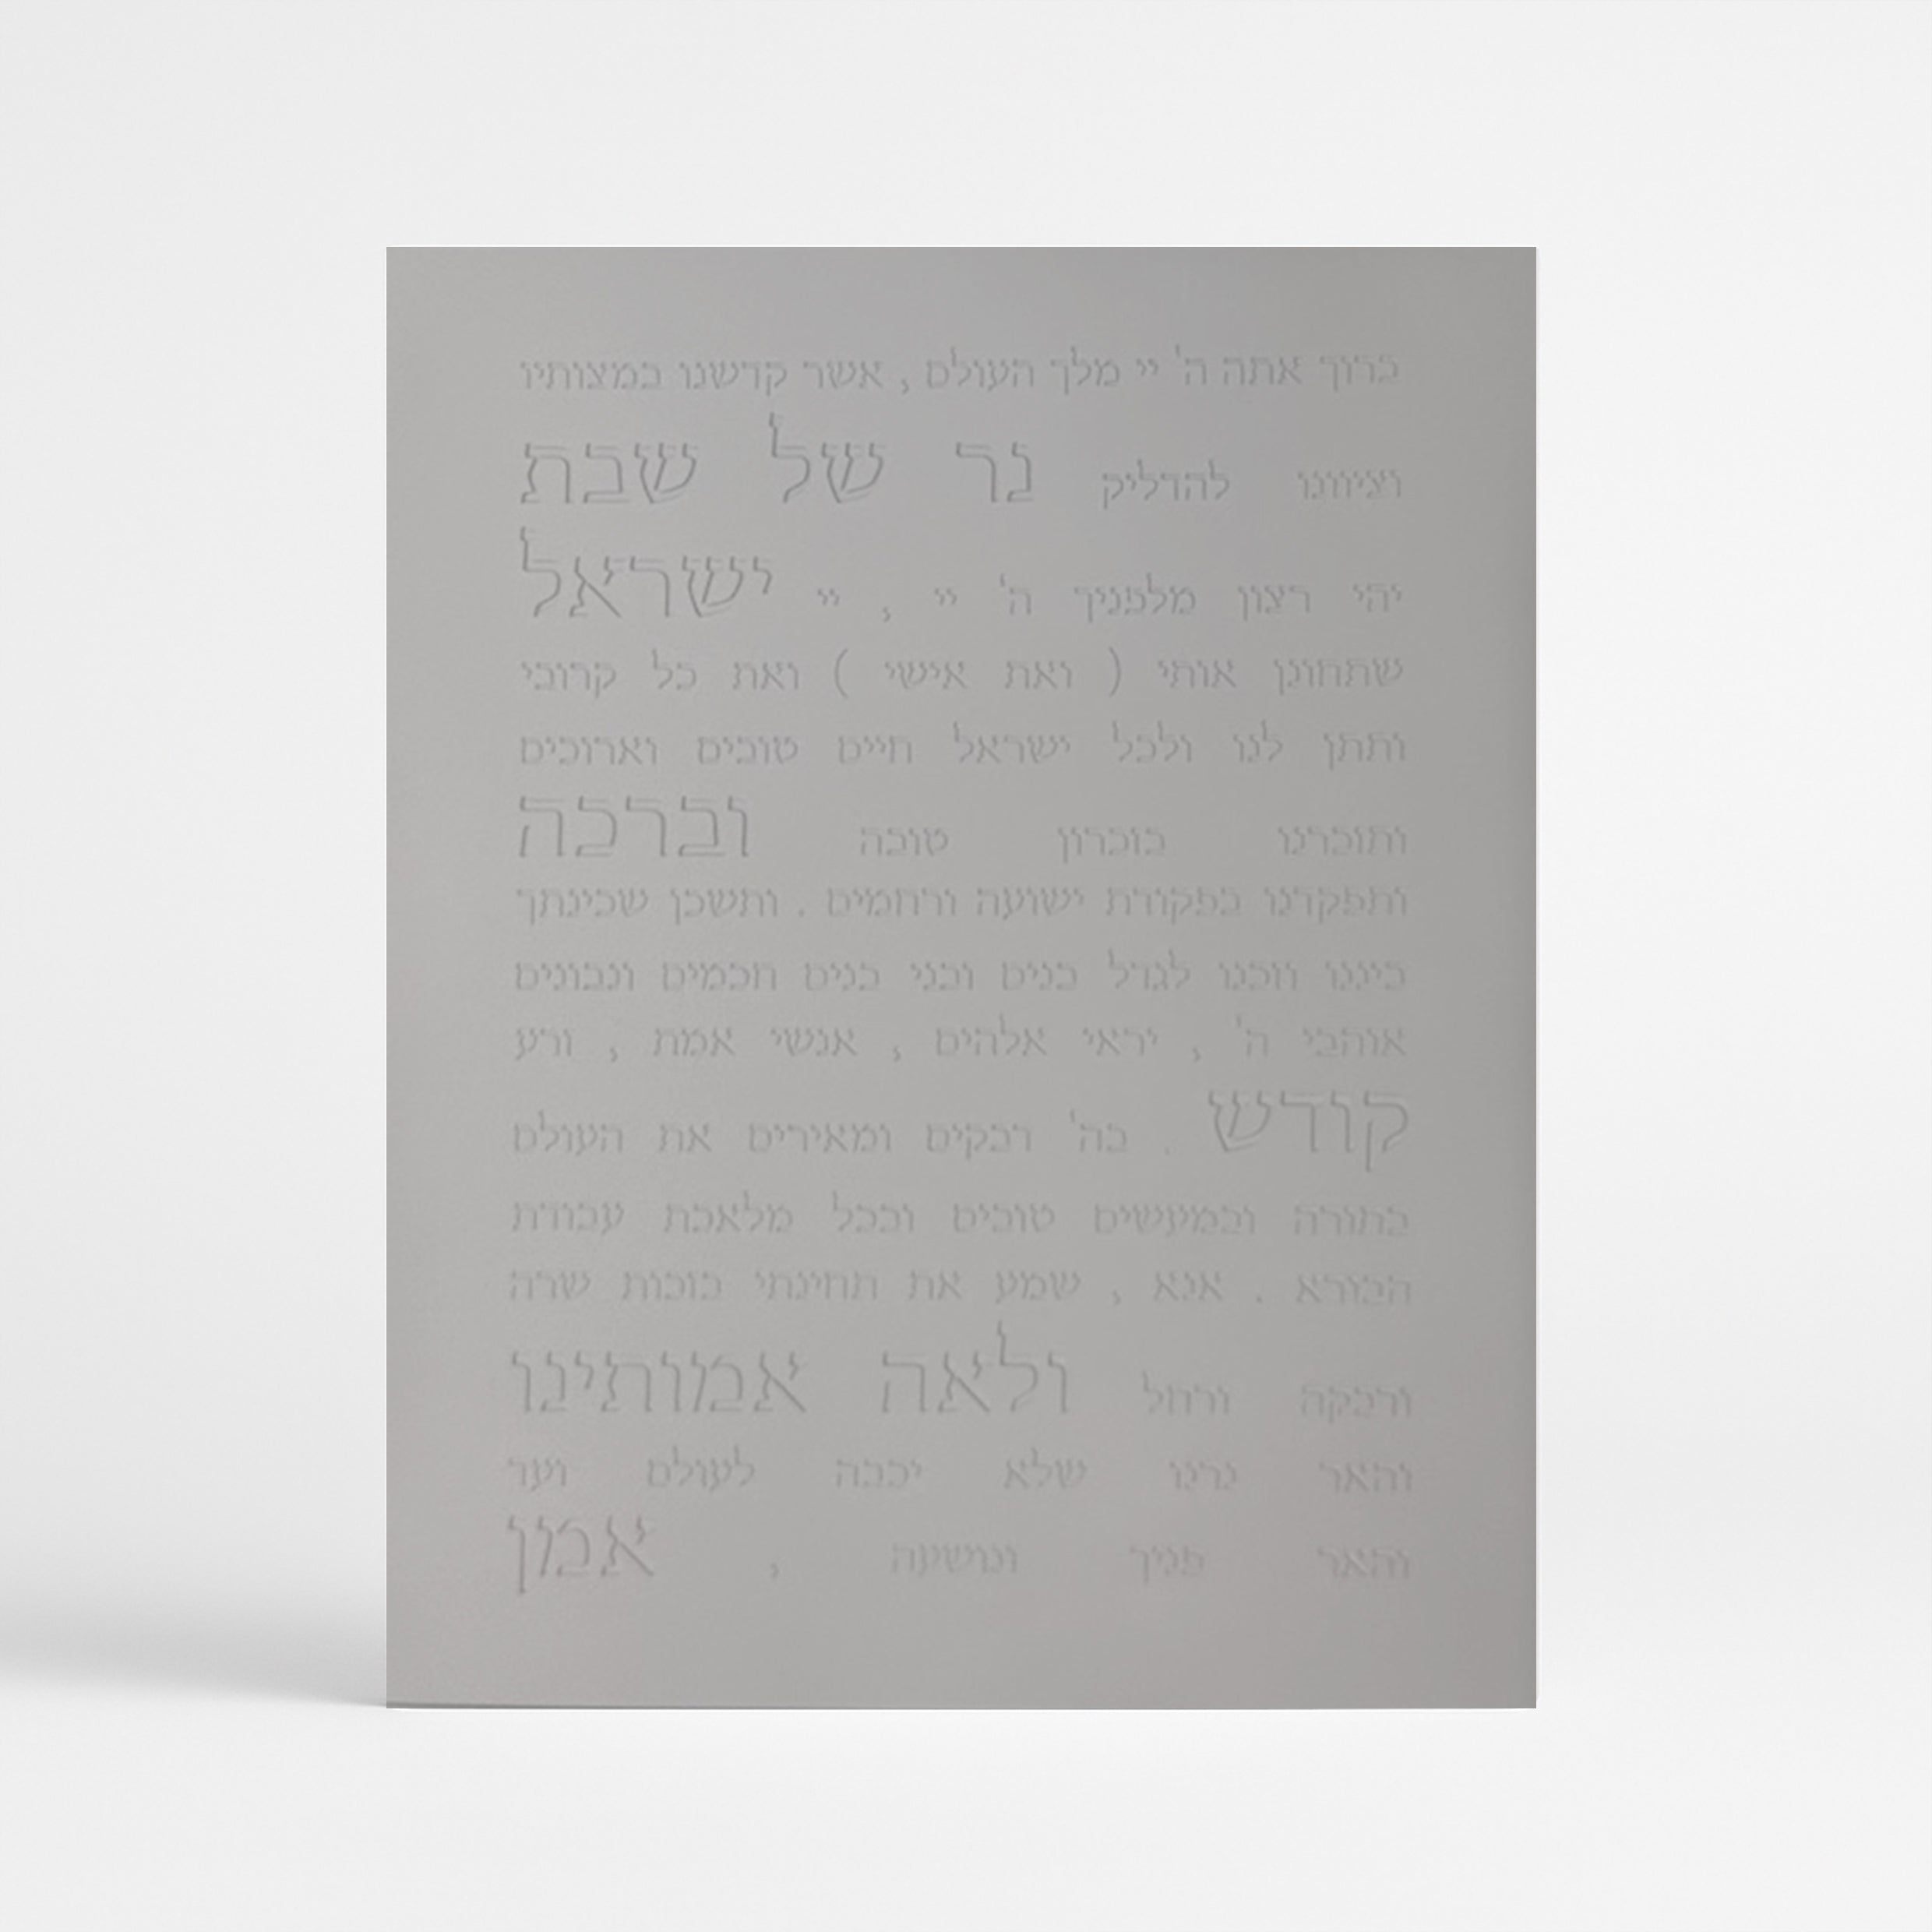 ברוך אתה ה' יי מלך העולם , אשר קדשנו במצותיו
וציוונו להדליק נר של שבת
יהי רצון מלפניך ה' יי , יי ישראל
שתחונן אותי ( ואת אישי ) ואת כל קרובי
ותתן לנו ולכל ישראל חיים טובים וארוכים
ותזכרנו בזכרון טובה וברכה
ותפקדנו בפקודת ישועה ורחמים . ותשכן שכינתך
ביננו וזכנו לגדל בנים ובני בנים חכמים ונבונים
אוהבי ה' , יראי אלהים , אנשי אמת , זרע
קודש . בה' דבקים ומאירים את העולם
בתורה ובמעשים טובים ובכל מלאכת עבודת
הבורא . אנא , שמע את תחינתי בזכות שרה
ורבקה ורחל ולאה אמותינו
והאר נרנו שלא יכבה לעולם ועד
והאר פניך ונושעה , אמן